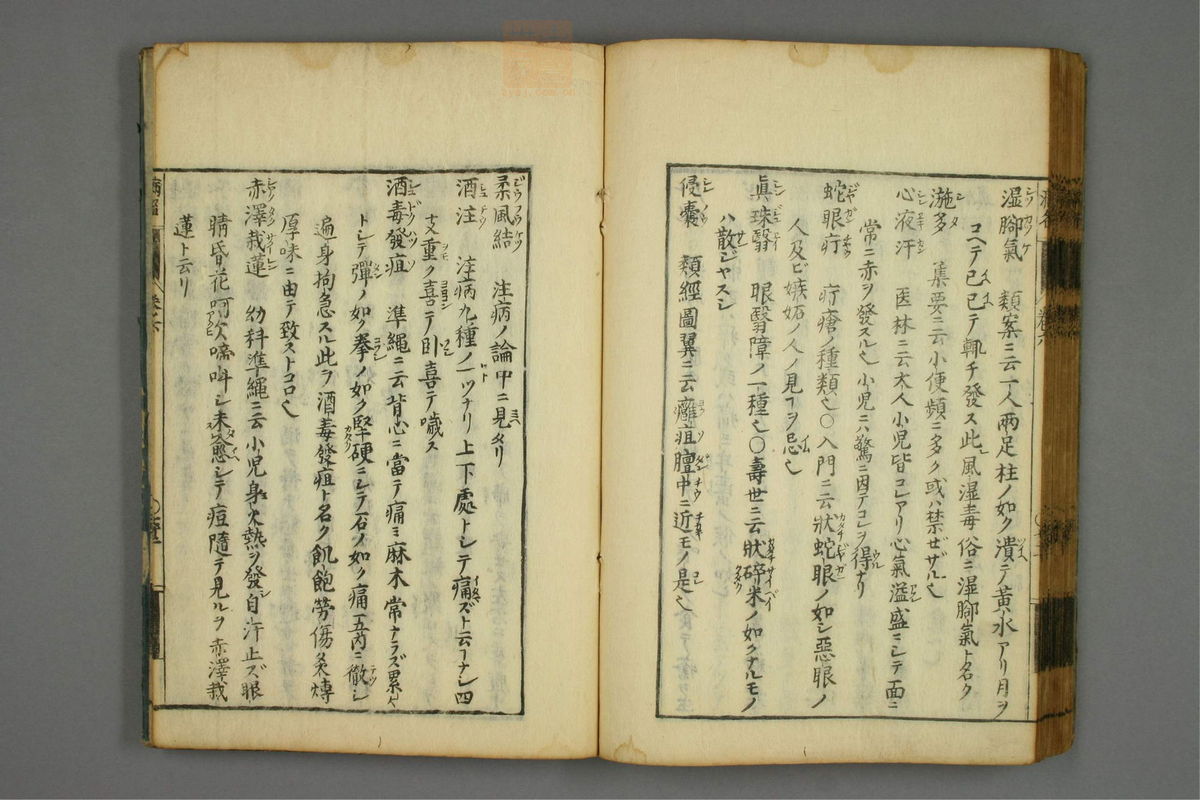 湿脚氣 類案ニ云一人兩足柱ノ如ク潰テ黄水アリ月ヲ
コヘテ已已テ輒チ發ス此風湿毒俗ニ湿脚氣ト名ク
瀡多 集要ニ云小便頻ニ多ク或ハ禁ゼザル也
心液汗 医林ニ云大人小児皆コレアリ心氣溢盛ニシテ面ニ
常ニ赤ヲ發スル也小児ニハ驚ニ因テコレヲ得ナリ
蛇眼疔 疔瘡ノ種類也〇入門ニ云狀蛇眼ノ如シ惡眼ノ
人及ビ嫉妬ノ人ノ見ヿヲ忌也
眞珠翳 眼翳障ノ一種也〇壽世ニ云狀碎米ノ如クナルモノ
ハ散ジヤスシ
侵嚢 類經圖翼ニ云癰疽膻中ニ近モノ是也
柔風結 注病ノ論中ニ見タリ
酒注 注病九種ノ一ツナリ上下處トシテ痛ズト云ヿナシ四
支重ク喜テ卧喜テ噦ス
酒毒發疽 準繩ニ云背心ニ當テ痛ミ麻木常ナラズ累々
トシテ彈ノ如ク拳ノ如ク堅硬ニシテ石ノ如ク痛五内ニ徹シ
遍身拘急スル此ヲ酒毒發疽ト名ク飢飽勞傷炙煿
厚味ニ由テ致ストコロ也
赤澤栽蓮 幼科準繩ニ云小児身大熱ヲ發自汗止ズ眼
睛昏花呵欠啼呌シ未愈シテ痘隨テ見ルヲ赤澤栽
蓮ト云リ